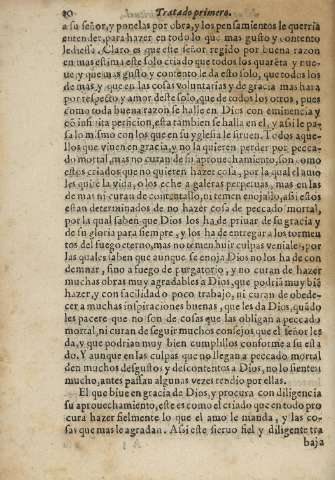 20 Tratado primero.
a su señor, y ponelas por obra, y los pensamientos le querria
entender, para hazer en todo lo que mas gusto y contento
le diesse. Claro es que este señor regido por buena razon
en mas estima este solo criado que todos los quarēta y nue-
ue, y que mas gusto y contento le da este solo, que todos los
de mas, y que en las cosas voluntarias y de gracia mas hara
por respecto y amor deste solo, que de todos los otros, pues
como toda buena razon se halle en Dios con eminencia y
cō infinita perficion, esta tambien se halla en el, y assi le pas-
sa lo mismo con los que en su yglesia le siruen. Todos aque-
llos que viuen en gracia, y no la quieren perder por pecca-
do mortal, mas no curan de su aprouechamiento, son como
estos criados que no quieren hazer cosa, por la qual el amo
les quite la vida, o los eche a galeras perpetuas, mas en las
de mas ni curan de contentallo, ni temen enojallo, assi estos
estan determinados de no hazer cosa de peccado mortal,
por la qual saben que Dios los ha de priuar de su gracia y
de su gloria para siempre, y los ha de entregar a los tormen
tos del fuego eterno, mas no temen huir culpas veniales, por
las quales saben que aunque se enoja Dios no los ha de con
demnar, sino a fuego de purgatorio, y no curan de hazer
muchas obras muy agradables a Dios, que podriā muy biē
hazer, y con facilidad o poco trabajo, ni curan de obede-
cer a muchas inspiraciones buenas, que les da Dios, quādo
les parece que no son de cosas que las obligan a peccado
mortal, ni curan de seguir muchos consejos que el señor les
da, y que podrian muy bien cumplillos conforme a su esta
do. Y aunque en las culpas que no llegan a peccado mortal
den muchos desgustos y descontentos a Dios, no lo sienten
mucho, antes passan algunas vezes riendo por ellas.
El que biue en gracia de Dios, y procura con diligencia
su aprouechamiento, este es como el criado que en todo pro
cura hazer fielmente lo que el amo le manda, y las co-
sas que mas le agradan. Assi este sieruo fiel y diligente tra
baja